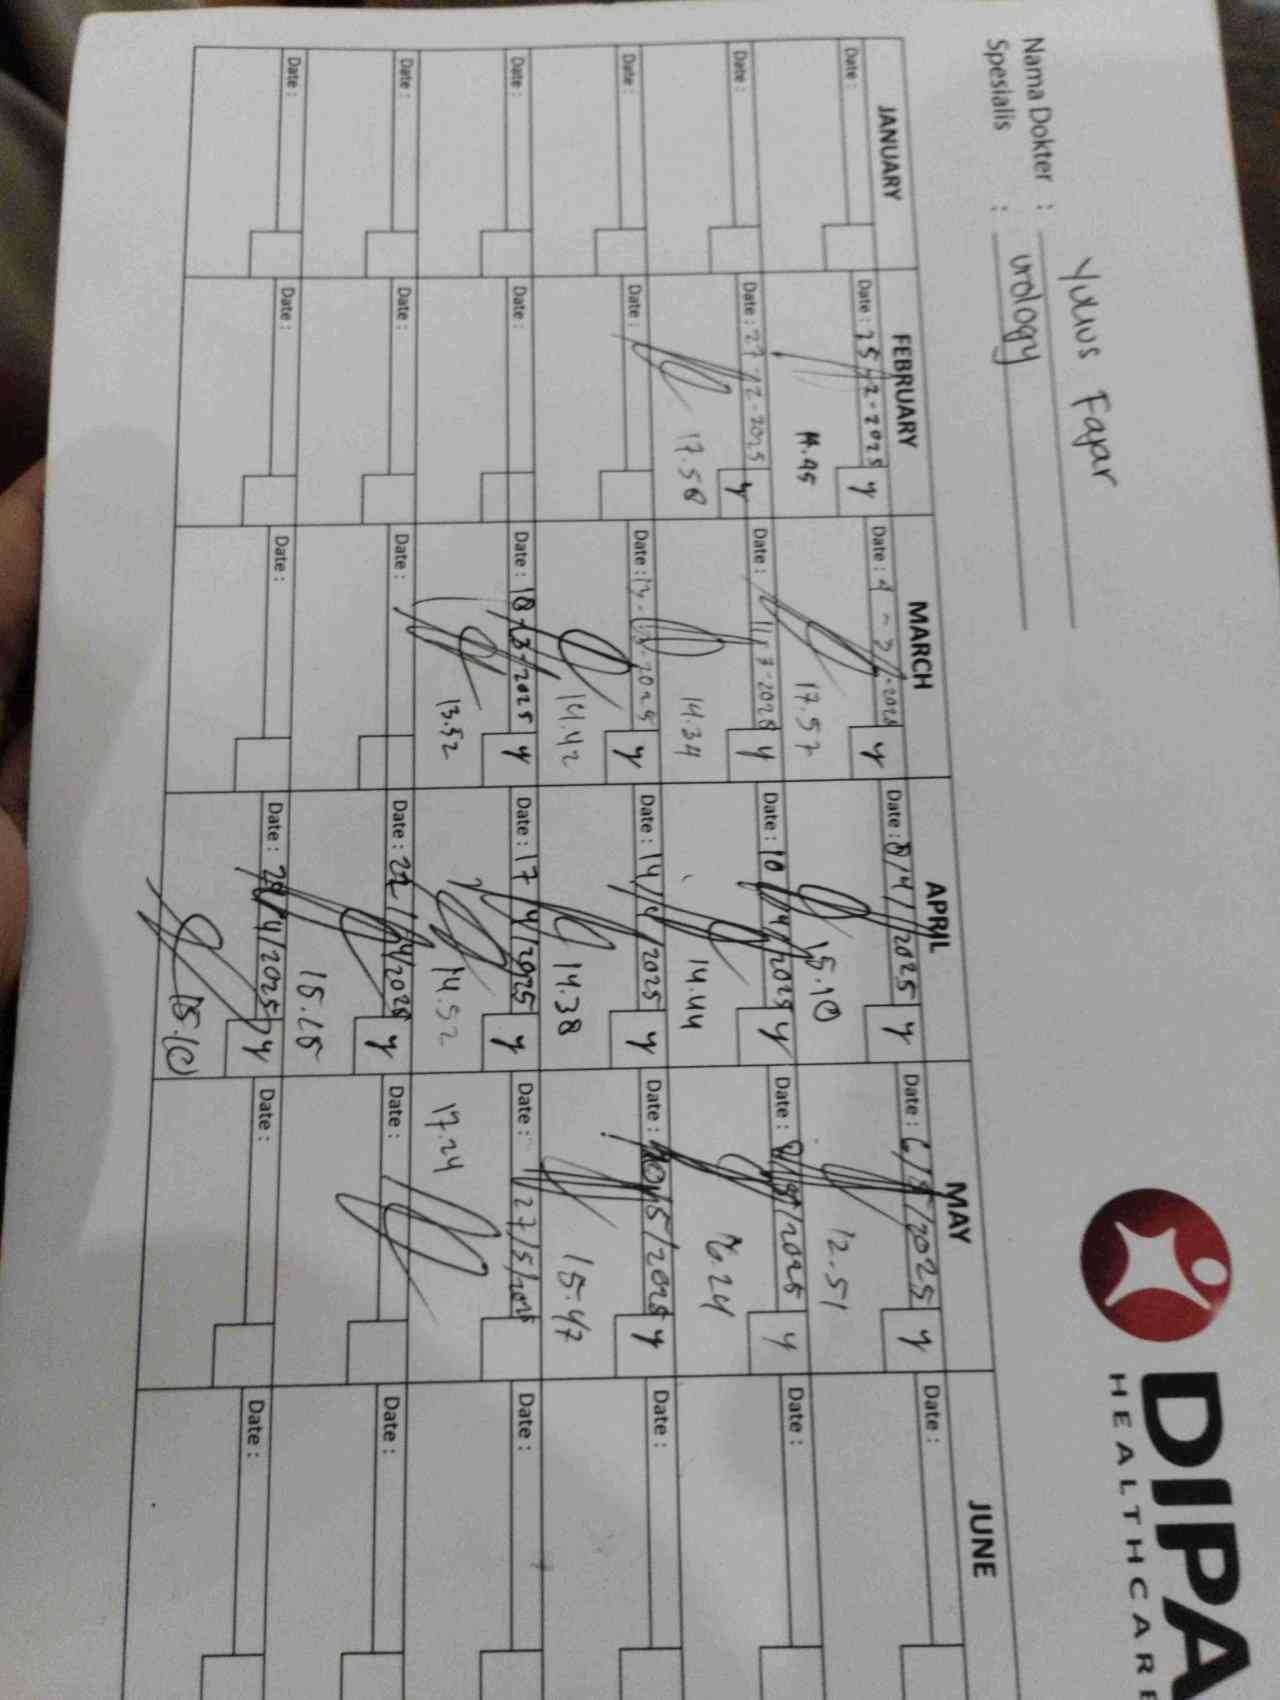 DIPA
HEALTHCARE
Nama Dokter : Yulius Fajar
Spesialis : urology
JANUARY FEBRUARY MARCH APRIL MAY JUNE
Date : Date : 25-2-2025 y Date : 4-3-2025 y Date : 8/4/2025 y Date : 6/5/2025 y Date :
17.57 15.10 12.51
Date : Date : 27-2-2025 y Date : 11-3-2025 y Date : 10/4/2025 y Date : 8/5/2025 y Date :
17.58 14.34 14.44 16.24
Date : Date : Date : 13-03-2025 y Date : 14/4/2025 y Date : 20/5/2025 y Date :
14.42 14.38 15.47
Date : Date : Date : 18-3-2025 y Date : 17/4/2025 y Date : 27/5/2025 Date :
13.52 14.52 17.24
Date : Date : Date : Date : 22/4/2025 y Date : Date :
15.15
Date : Date : Date : Date : 29/4/2025 y Date : Date :
15.10